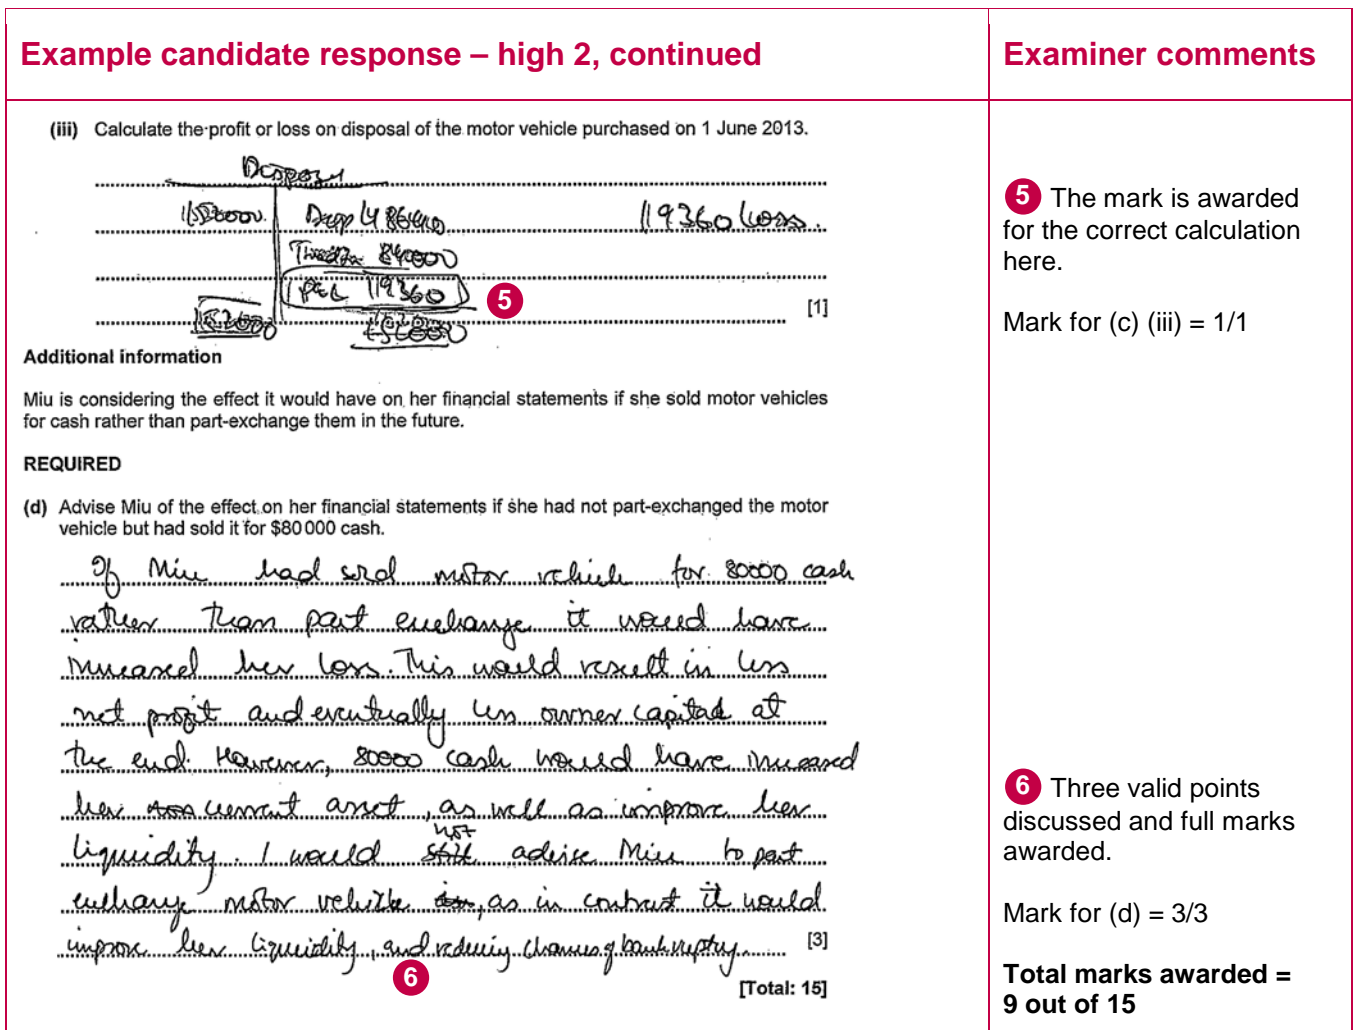 Example candidate response – high 2, continued
Examiner comments
(iii) Calculate the profit or loss on disposal of the motor vehicle purchased on 1 June 2013.
119360 loss.
84000
P&L 119360
5
[1]
5 The mark is awarded
for the correct calculation
here.
Mark for (c) (iii) = 1/1
Additional information
Miu is considering the effect it would have on her financial statements if she sold motor vehicles
for cash rather than part-exchange them in the future.
REQUIRED
(d) Advise Miu of the effect on her financial statements if she had not part-exchanged the motor
vehicle but had sold it for $80 000 cash.
If Miu had sold motor vehicle for 80000 cash
rather than part exchange it would have
increased her loss. This would result in less
net profit and eventually less owner capital at
the end. However, 80000 cash would have increased
her current asset, as well as improve her
liquidity. I would not advise Miu to part
exchange motor vehicle, as in contrast it would
improve her liquidity, and reducing chances of bankruptcy.
[3]
6
[Total: 15]
6 Three valid points
discussed and full marks
awarded.
Mark for (d) = 3/3
Total marks awarded =
9 out of 15